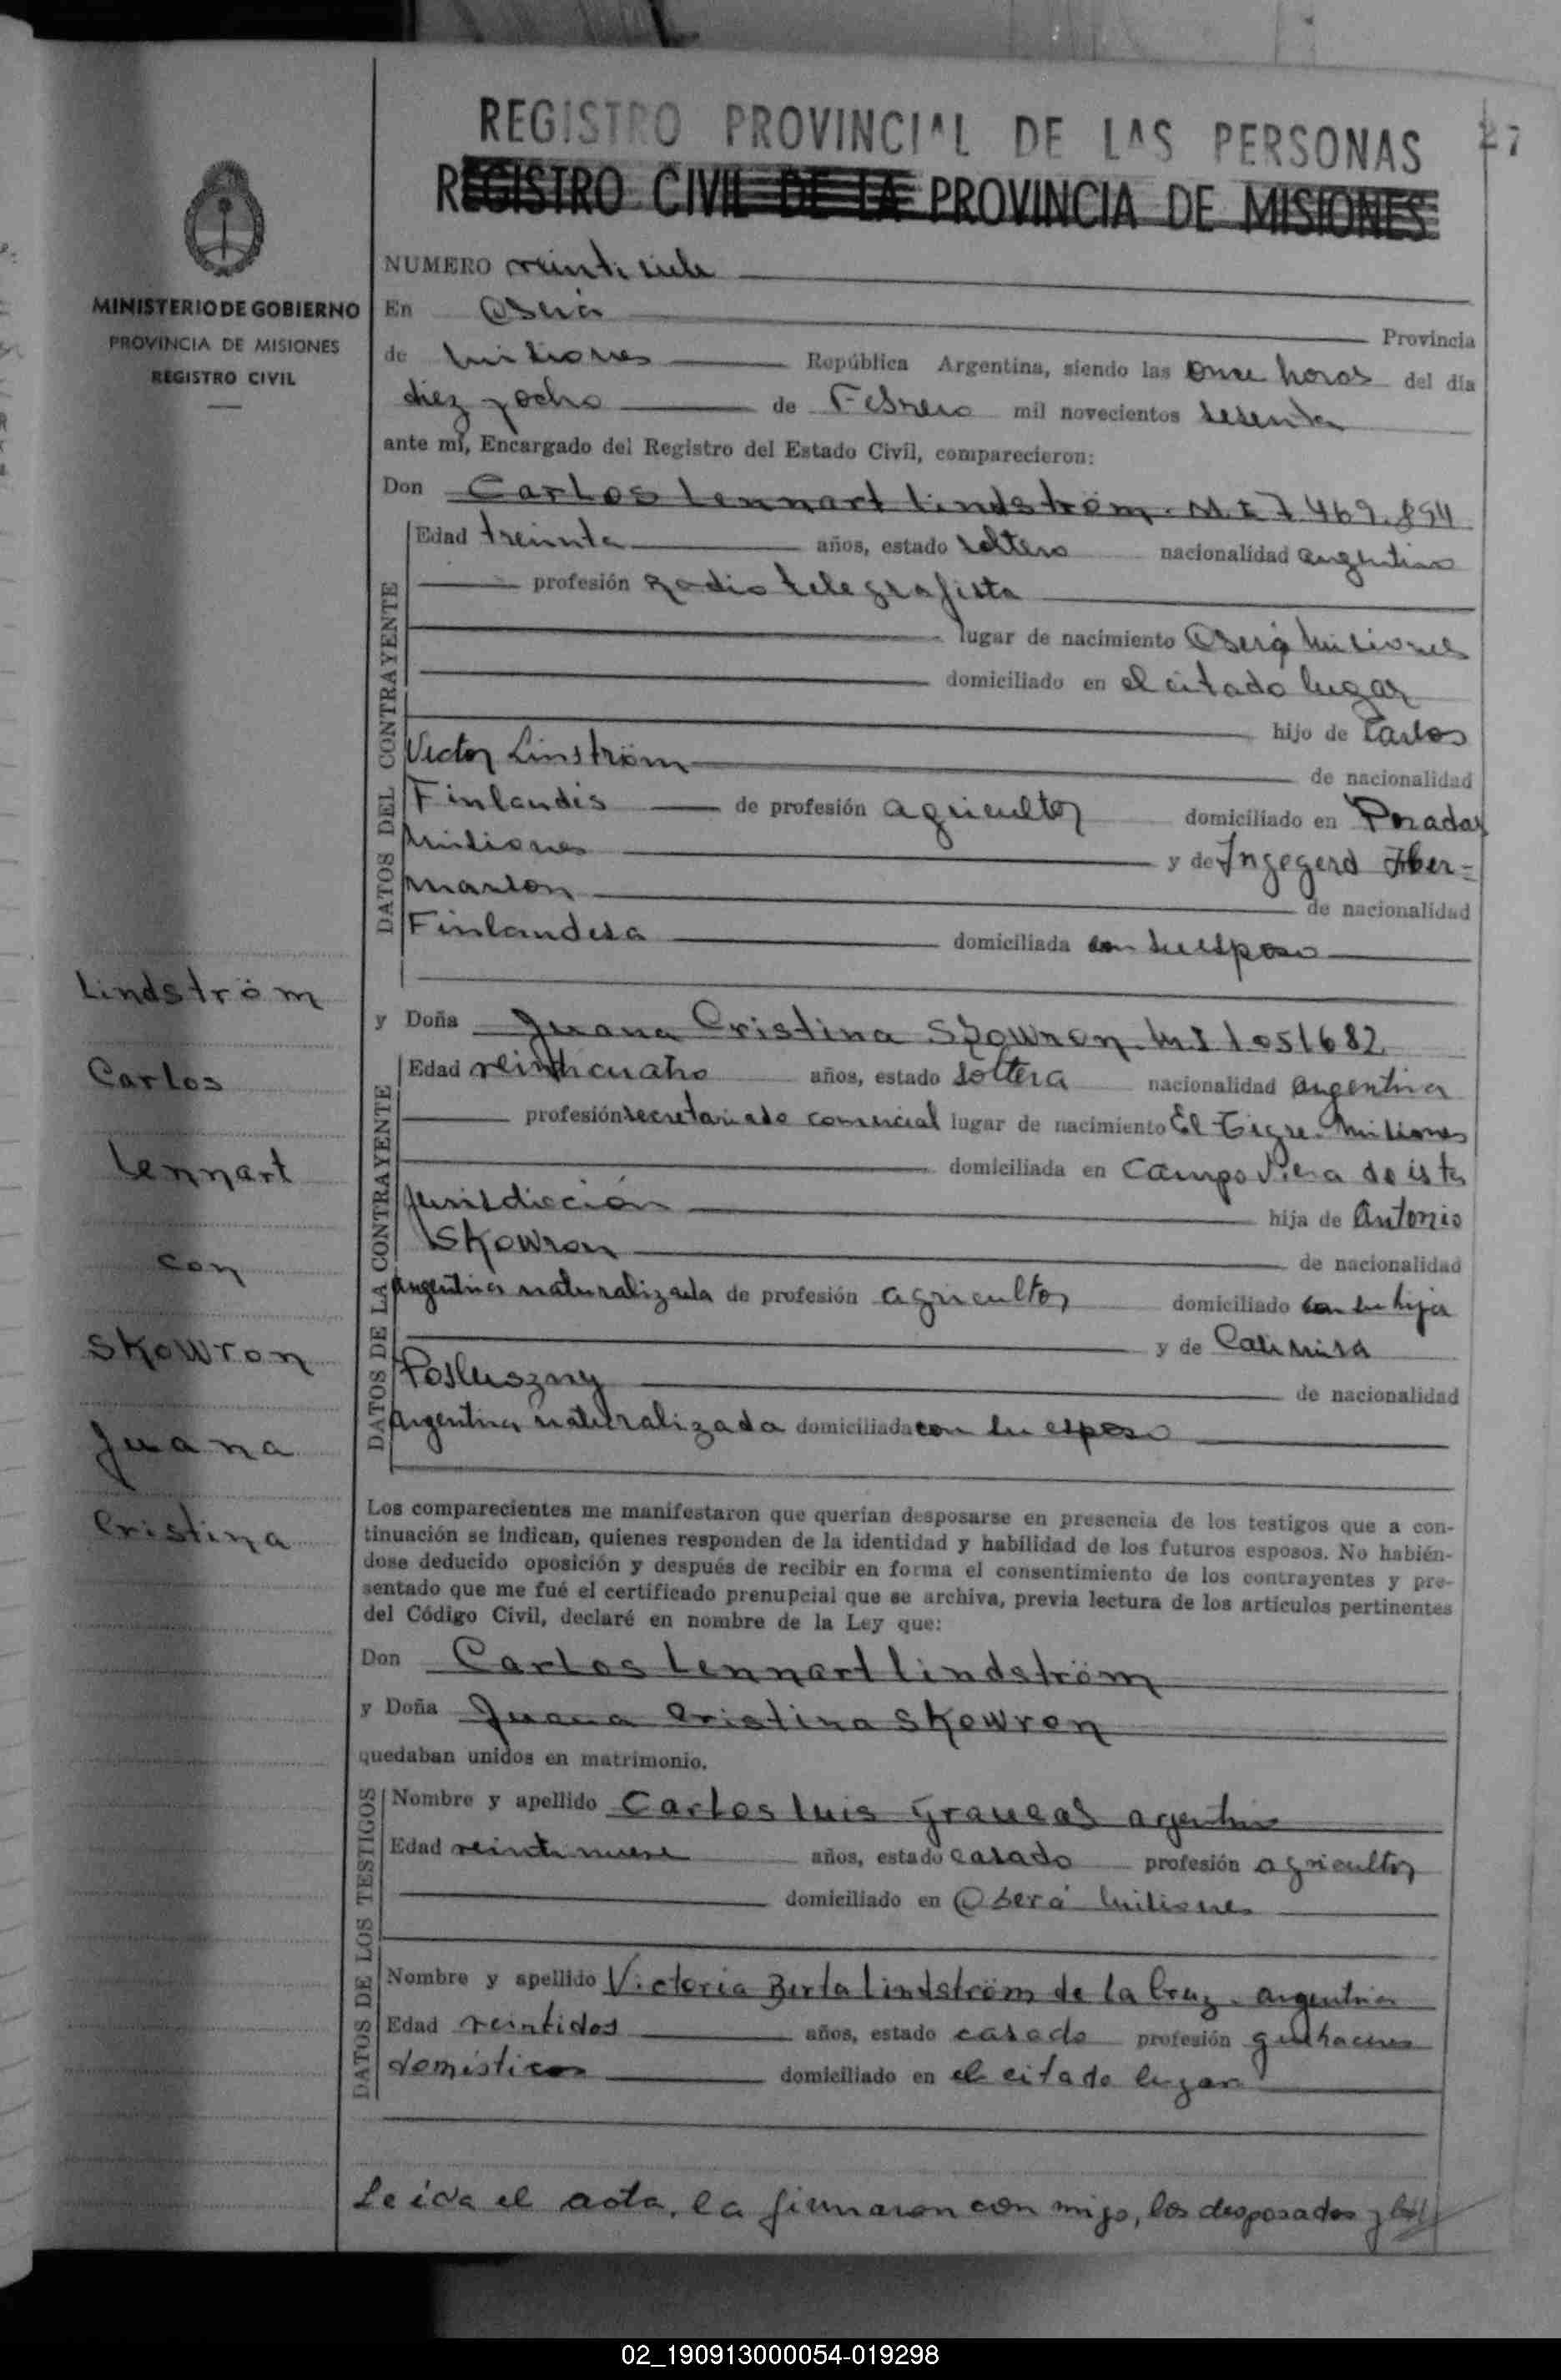 REGISTRO PROVINCIAL DE LAS PERSONAS
27
REGISTRO CIVIL DE LA PROVINCIA DE MISIONES
MINISTERIO DE GOBIERNO
PROVINCIA DE MISIONES
REGISTRO CIVIL
NUMERO veintisiete
En Oberá Provincia
de Misiones República Argentina, siendo las once horas del día
diez y ocho de Febrero mil novecientos sesenta
ante mí, Encargado del Registro del Estado Civil, comparecieron:
Don Carlos Lennart Lindström. M.I 7.469.854
DATOS DEL CONTRAYENTE
Edad treinta años, estado soltero nacionalidad argentino
profesión Radio telegrafista
lugar de nacimiento Oberá Misiones
domiciliado en el citado lugar
hijo de Carlos
Victor Linström de nacionalidad
Finlandés de profesión agricultor domiciliado en Posadas
Misiones y de Ingegerd Her-
manson de nacionalidad
Finlandesa domiciliada con su esposo
y Doña Juana Cristina Skowron. M.I 1051682
DATOS DE LA CONTRAYENTE
Edad veinticuatro años, estado soltera nacionalidad argentina
profesión secretariado comercial lugar de nacimiento El Tigre. Misiones
domiciliada en Campo Viera de ésta
jurisdicción hija de Antonio
Skowron de nacionalidad
argentina naturalizada de profesión agricultor domiciliado con su hija
y de Casimira
Posluszny de nacionalidad
argentina naturalizada domiciliada con su esposo
Lindström
Carlos
Lennart
con
Skowron
Juana
Cristina
Los comparecientes me manifestaron que querían desposarse en presencia de los testigos que a con-
tinuación se indican, quienes responden de la identidad y habilidad de los futuros esposos. No habién-
dose deducido oposición y después de recibir en forma el consentimiento de los contrayentes y pre-
sentado que me fué el certificado prenupcial que se archiva, previa lectura de los artículos pertinentes
del Código Civil, declaré en nombre de la Ley que:
Don Carlos Lennart Lindström
y Doña Juana Cristina Skowron
quedaban unidos en matrimonio.
DATOS DE LOS TESTIGOS
Nombre y apellido Carlos Luis argentino
Edad veintinueve años, estado casado profesión agricultor
domiciliado en Oberá Misiones
Nombre y apellido Victoria Berta Lindström de la Cruz. argentina
Edad veintidos años, estado casada profesión quehaceres
domésticos domiciliado en el citado lugar
Leída el acta, la firmaron con migo, los desposados y los
02_190913000054-019298